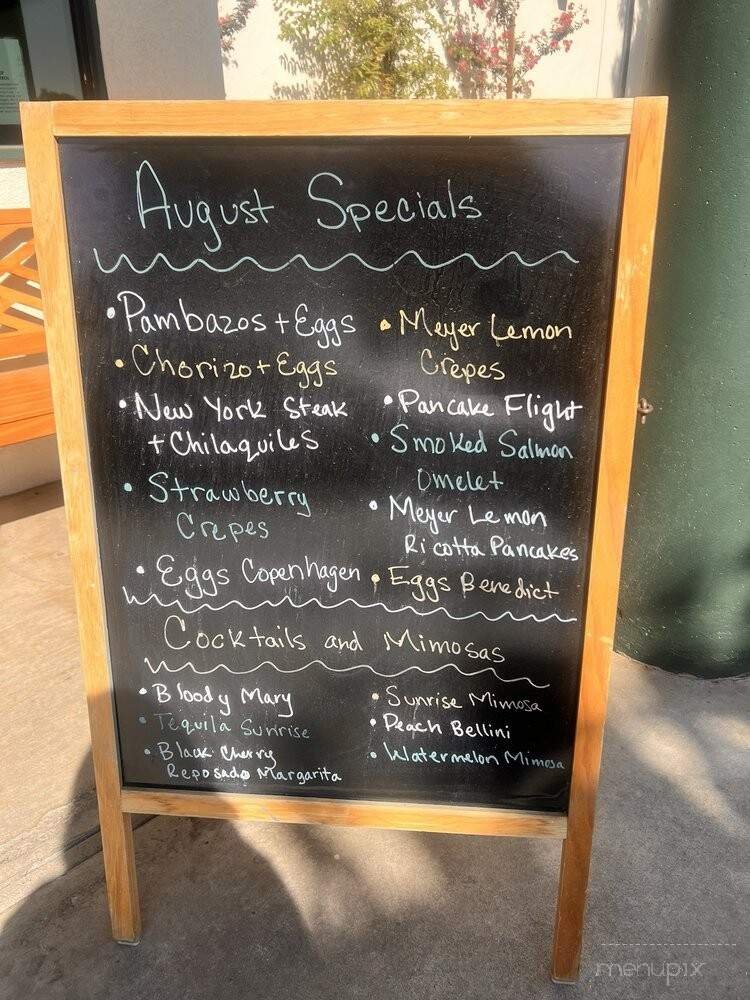 August Specials
• Pambazos + Eggs
• Chorizo + Eggs
• New York Steak
+ Chilaquiles
• Strawberry
Crepes
• Eggs Copenhagen
• Meyer Lemon
Crepes
• Pancake Flight
• Smoked Salmon
Omelet
• Meyer Lemon
Ricotta Pancakes
• Eggs Benedict
Cocktails and Mimosas
• Bloody Mary
• Tequila Sunrise
• Black Cherry
Reposado Margarita
• Sunrise Mimosa
• Peach Bellini
• Watermelon Mimosa
menupix